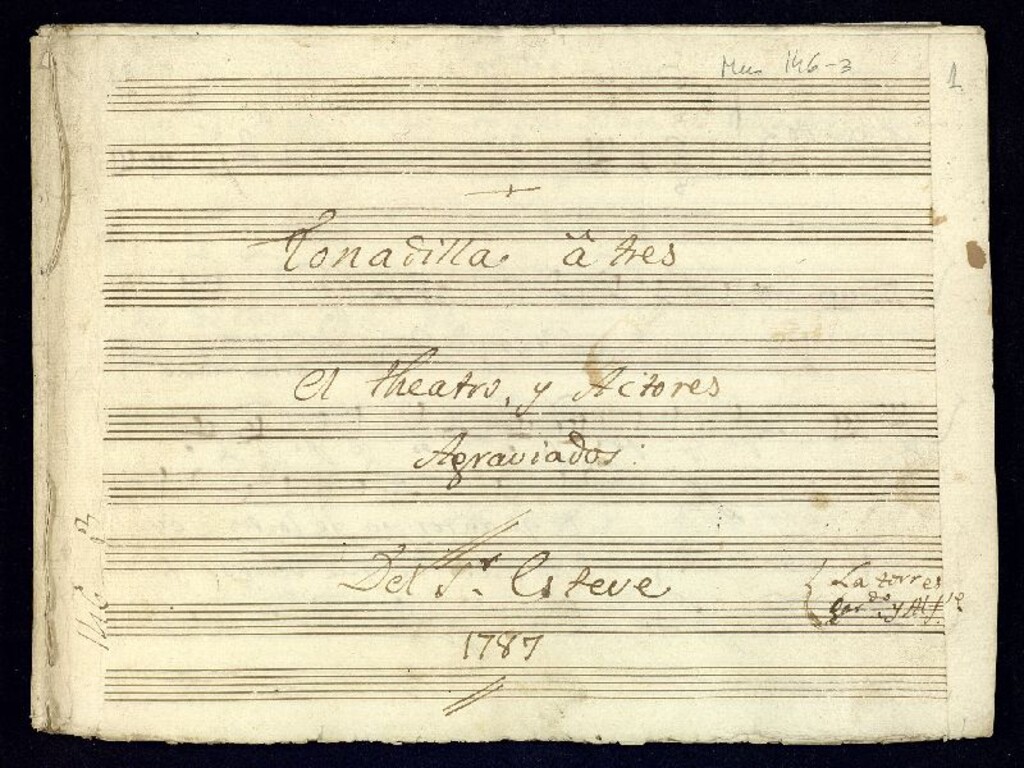 Mus 146-3
1
Tonadilla. â tres
el theatro, y Actores
Agraviados.
Del Sr. Esteve
La torre
y
1787
146 3